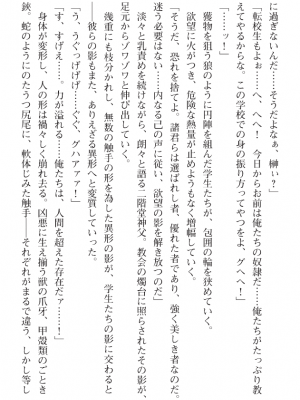 に過ぎないんだ……そうだよなぁ、榊ぃ？」
「転校生もよぉ……へ、へへ！　今日からお前は俺たちの奴隷だ……俺たちがたっぷり教
えてやるからな。この学校での身の振り方ってやつをよ、グヘヘ！」
「……ッ！」
　獲物を狙う狼のように円陣を組んだ学生たちが、包囲の輪を狭めていく。
　欲望に火がつき、危険な熱量が止めようもなく増幅していく。
「そうだ、恐れを捨てよ。諸君らは選ばれし者、優れた者であり、強く美しき者なのだ。
迷う必要はない……内なる己の声に従い、欲望の影を解き放つのだ」
　淡々と乳責めを続けながら、朗々と語る二階堂神父。教会の燭台に照らされたその影が、
足元からゾワゾワと伸び出していく。
　幾重にも枝分かれし、無数の触手の形を為した異形の影が、学生たちの影に交わると
――彼らの影もまた、ありえざる異形へと変質していった。
「う、うぐっげげげ……ぐぐ、グハァァァ！」
「す、すげえ……。力が溢れる……俺たちは、人間を超えた存在だァ……！」
　身体が変形し、人の形は禍々しく崩れ去る。凶悪に生え揃う獣の爪牙、甲殻類のごとき
鋏。蛇のようにのたうつ尻尾に、軟体じみた触手――それぞれがまるで違う、しかし等し